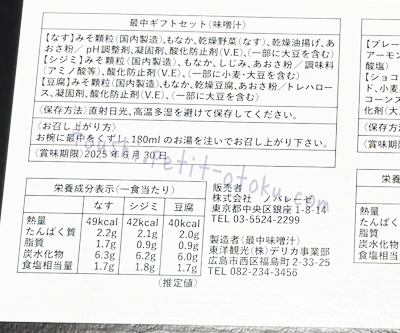 最中ギフトセット(味噌汁)
【なす】みそ顆粒(国内製造)、もなか、乾燥野菜(なす)、乾燥油揚げ、あ
おさ粉／pH調整剤、凝固剤、酸化防止剤(V.E)、(一部に大豆を含む)
【シジミ】みそ顆粒(国内製造)、もなか、しじみ、あおさ粉／調味料
(アミノ酸等)、酸化防止剤(V.E)、(一部に小麦・大豆を含む)
【豆腐】みそ顆粒(国内製造)、もなか、乾燥豆腐、あおさ粉／トレハロー
ス、凝固剤、酸化防止剤(V.E)、(一部に大豆を含む)
〈保存方法〉直射日光、高温多湿を避けて保存してください。
〈お召し上がり方〉
お椀に最中をくずし、180mlのお湯を注いでお召し上がり下さい。
〈賞味期限〉2025年6月30日
栄養成分表示(一食当たり)
なす シジミ 豆腐
熱量 49kcal 42kcal 40kcal
たんぱく質 2.2g 2.1g 2.0g
脂質 1.7g 0.9g 0.9g
炭水化物 6.3g 6.2g 6.0g
食塩相当量 1.7g 1.8g 1.7g
(推定値)
販売者
株式会社 ノバレーゼ
東京都中央区銀座1-8-14
TEL 03-5524-2299
製造者(最中味噌汁)
東洋観光(株)デリカ事業部
広島市西区福島町2-33-25
TEL 082-234-3456
【プレー
アーモン
酸塩)
【ショコ
ド、小麦
コーンス
化剤(大
〈保存方
〈賞味期
熱量
たんぱく
脂質
炭水化
食塩相
petit-otoku.com